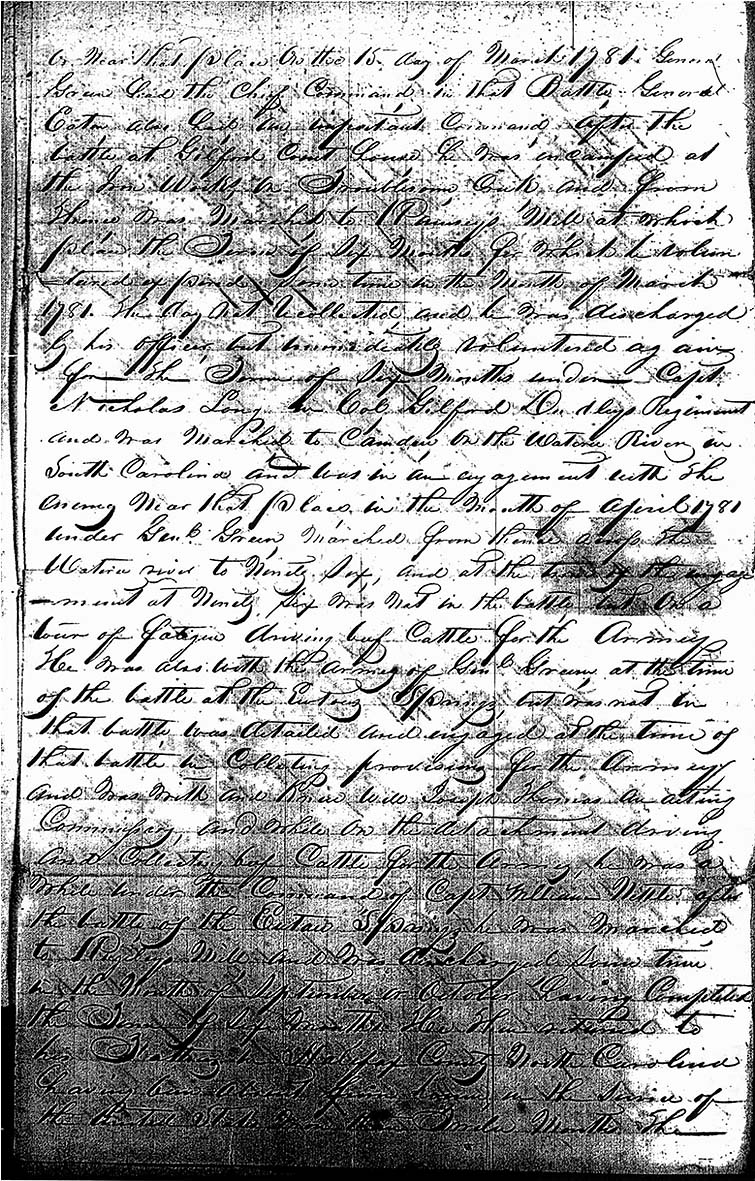 or Near that place On the 15 day of March 1781 General
Green had the Chief Command in that Battle General
Eaton also had an important Command after the
battle at Gilford Court House he was incamped at
the Iron Works on Troublesom Creek and from
thence was Marched to Ramseys Mill at which
place the Term of Six Months for which he volun
-tered expired some time in the Month of March
1781 the day not recollected and he was discharged
by his officer, but immidiately volunteered again
for the Term of Six Months under Capt
Nicholas Long in Col Gilford Dudleys Regiment
and was Marched to Camden On the Wateree River in
South Carolina and was in an engagement with the
enemy Near that place in the Month of April 1781
under Genl. Green Marched from thence across the
Wateree river to Ninety Six, and at the time of the engage
-ment at Ninety Six was Not in the battle but On a
tour of fatigue driving beef Cattle for the Army
He was also with the army of Genl Green at the time
of the battle at the Eutaw Springs but was not in
that battle was detailed and engaged at the time of
that battle in Collecting provisions for the Army
and was with and knew well Joseph Thomas an acting
Commissary, and while on the detachment driving
and Collecting beef Cattle for the Army, he was a
while under the Command of Capt William after
the battle of the Eutaw Springs he was Marched
to Mill and was discharged some time
in the Month of September or October having Completed
the Term of Six Months He then returned to
his in Halifax County North Carolina
having been absent from home in the service of
the United States more than Twelve Months the